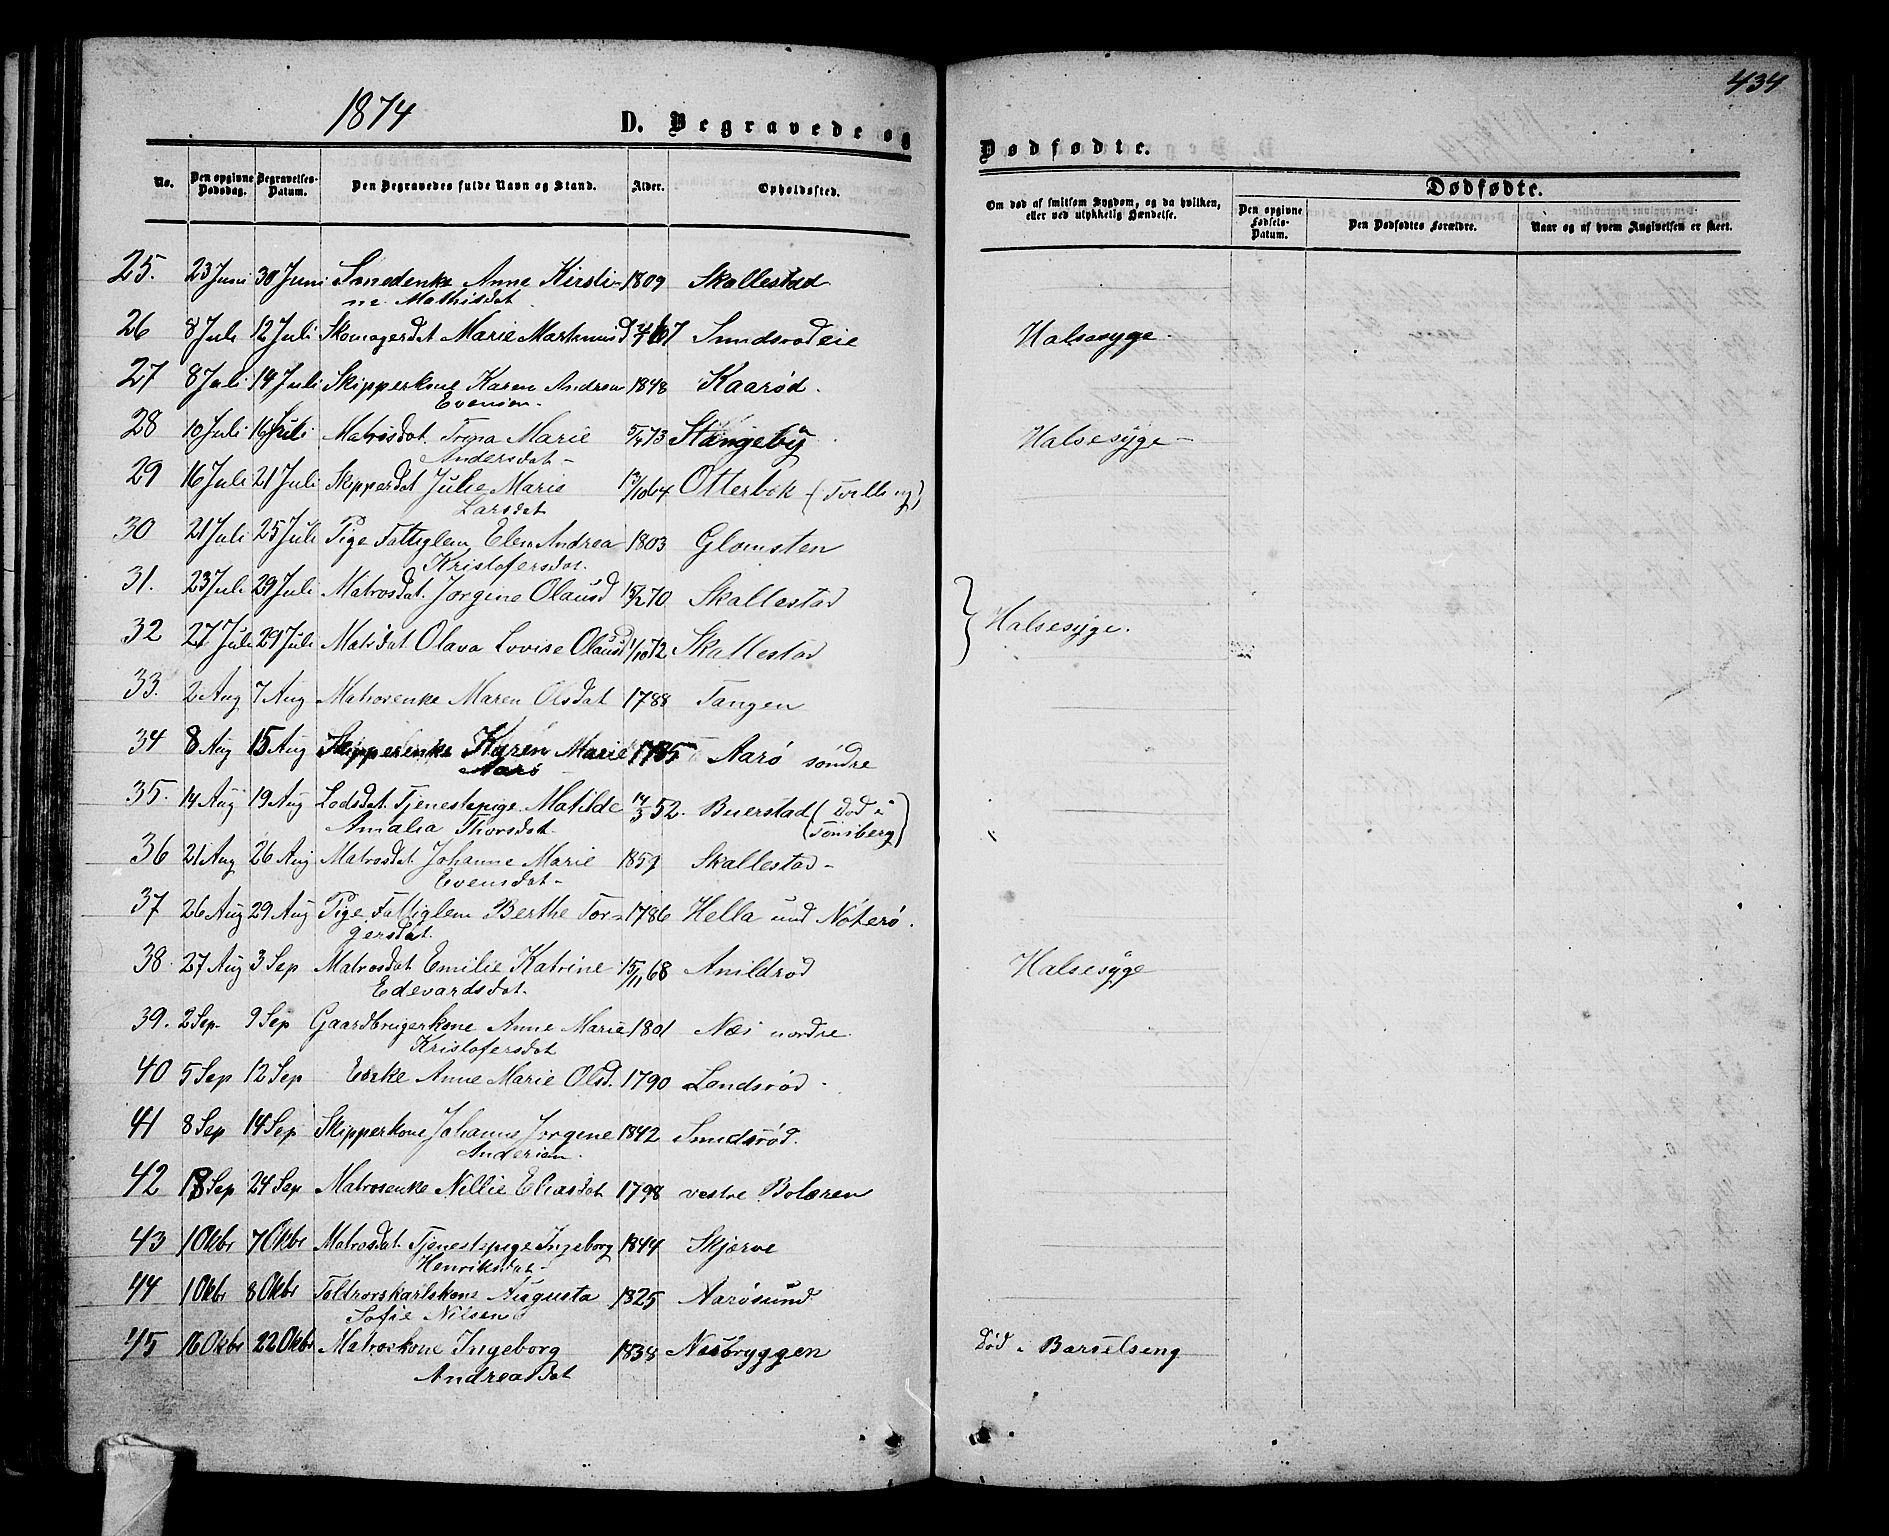 434
1874
D. Begravede og
Dødfødte.
No.
Den opgivne Dødsdag.
Begravelses-Datum.
Den Begravedes fulde Navn og Stand.
Alder.
Opholdssted.
Om død af smitsom Sygdom, og da hvilken, eller ved ulykkelig Hændelse.
Dødfødte.
Den opgivne Fødsels-Datum.
Den Dødfødtes Forældre.
Naar og af hvem Angivelsen er skeet.
25. 23 Juni 30 Juni Anne Kirsti- 1809 Skallestad
ne Mathisdat
26 8 Juli 12 Juli Skomagerdat Marie Smidsrødeie Halsesyge.
27 8 Juli 14 Juli Skipperkone Karen Andrea 1848 Kaarød.
Evensen.
28 10 Juli 16 Juli Matrosdat. Marie 73 Stangeby Halsesyge
Andersdat
29 16 Juli 21 Juli Skipperdat Julie Marie 13/10 64 Otterbek (Tvilling)
Larsdat
30 21 Juli 25 Juli Pige Fattiglem Elen Andrea 1803 Glomsten
Kristofersdat.
31. 23 Juli 29 Juli Matrosdat. Jørgine Olausd 15/2 70 Skallestad
Halsesyge.
32 27 Juli 29 Juli Matsdat Olava Lovise Olausd 1/10 72 Skallestad
33. 2 Aug 7 Aug Matrosenke Maren Olsdat 1788 Tangen
34 8 Aug 15 Aug Skipperenke Karen Marie Aarø søndre
Aarø
35. 14 Aug 19 Aug Lodsdat. Tjenestepige Matilde 14/3 52. Buerstad (Død i
Amalia Thorsdat. Tønsberg)
36 21 Aug 26 Aug Matrosdat Johanne Marie Skallestad
Evensdat
37 26 Aug 29 Aug Pige Fattiglem Berthe Tor- 1786 Hella und Nøterø.
gersdat.
38. 27 Aug 3 Sep Matrosdat Emilie Katrine 15/11 68 Anildrød Halsesyge
Edevardsdat.
39. 2 Sep. 9 Sep Gaardbrugerkone Anne Marie 1801 Næs nordre
Kristofersdat
40 5 Sep 12 Sep Enke Anne Marie Olsd. 1790 Landsrød
41 8 Sep 14 Sep Skipperkone Johanne Jørgine 1842 Smidsrød.
Andersen.
42 Sep 24 Sep Matrosenke Nillie Eliasdat 1798 vestre Bolæren
43 1 Oktbr 7 Oktbr Matrosdat. Tjenestepige Ingeborg 1844 Skjærve
Henriksdat
44 1 Oktbr 8 Oktbr Toldrorskarlskone Augusta 1825 Aarøsund
Sofie Nilsen
45 16 Oktbr 22 Oktbr Matroskone Ingeborg 1838 Næsbryggen Død i Barselseng
Andreasdat